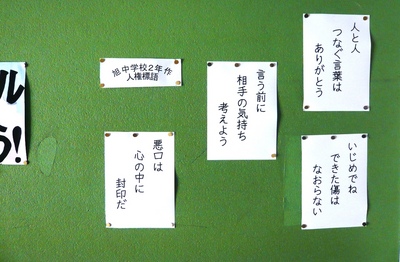 ル
う!
旭中学校2年作
人権標語
人と人
つなぐ言葉は
ありがとう
言う前に
相手の気持ち
考えよう
いじめでね
できた傷は
なおらない
悪口は
心の中に
封印だ